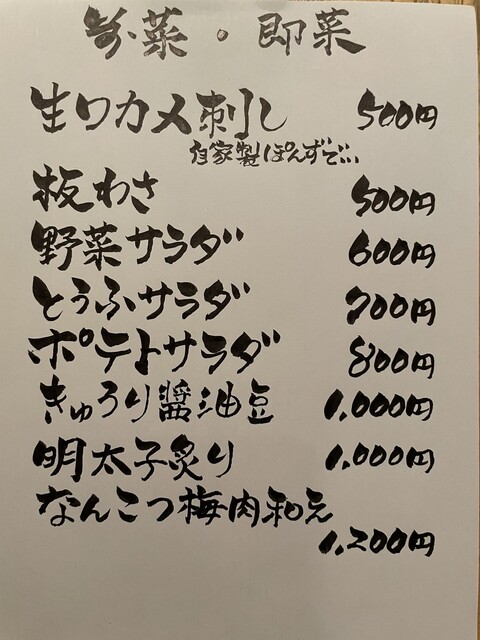 前菜・即菜
生ワカメ刺し 500円
自家製ぽんずで…
板わさ 500円
野菜サラダ 600円
とうふサラダ 700円
ポテトサラダ 800円
きゅうり醤油豆 1,000円
明太子炙り 1,000円
なんこつ梅肉和え
1,200円